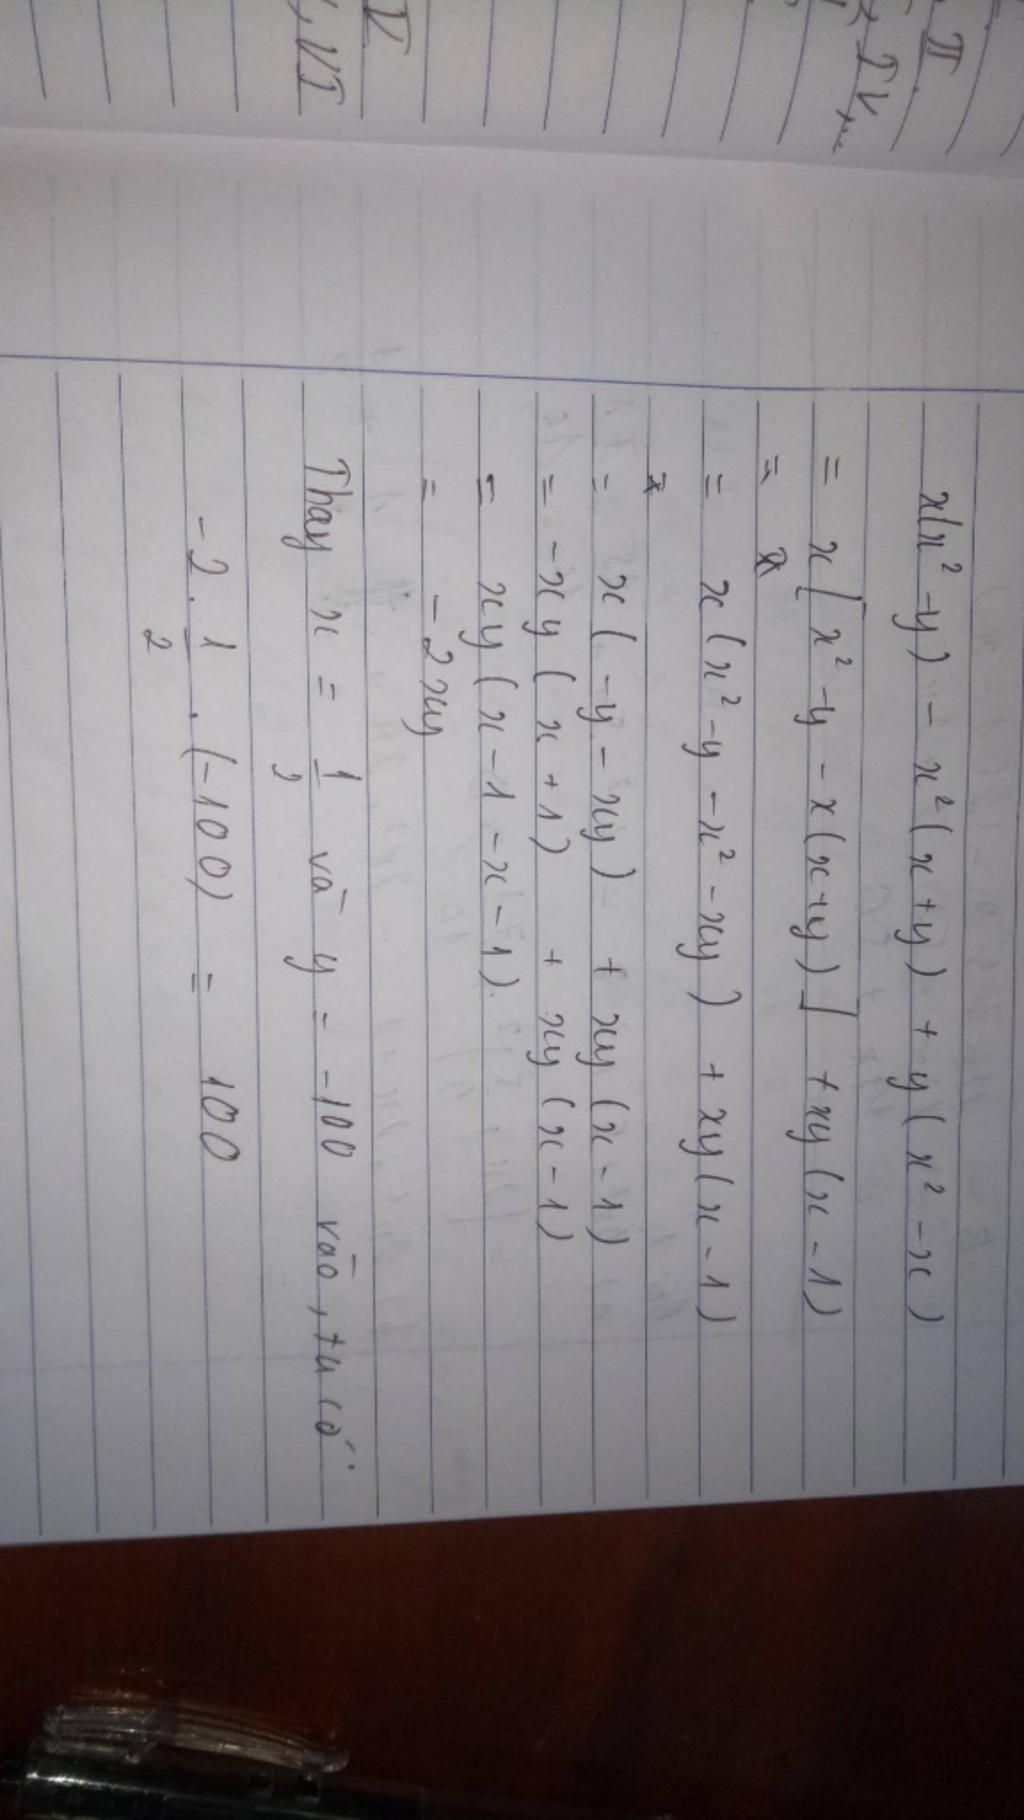 II
, IV,...
V
, VI
x(x² - y) - x²(x + y) + y(x² - x)
= x[x² - y - x(x + y)] + xy(x - 1)
=
= x(x² - y - x² - xy) + xy(x - 1)
= x(-y - xy) + xy(x - 1)
= -xy(x + 1) + xy(x - 1)
= xy(x - 1 - x - 1).
= -2xy
Thay x = 1/2 và y = -100 vào, ta có
-2 . 1/2 . (-100) = 100